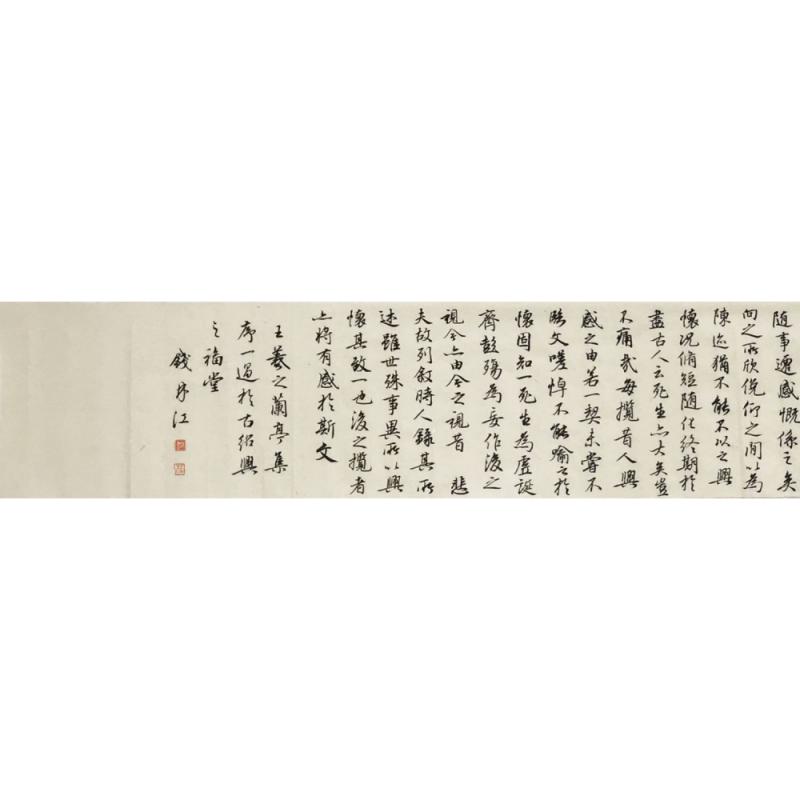 随事遷感慨係之矣
向之所欣俛仰之閒以為
陳迹猶不能不以之興
懷況脩短随化終期於
盡古人云死生亦大矣豈
不痛哉每攬昔人興
感之由若一契未嘗不
臨文嗟悼不能喻之於
懷固知一死生為虛誕
齊彭殤為妄作後之
視今亦由今之視昔 悲
夫故列敘時人錄其所
述雖世殊事異所以興
懷其致一也後之攬者
亦將有感於斯文
王羲之蘭亭集
序一過於古紹興
之福堂
錢 江